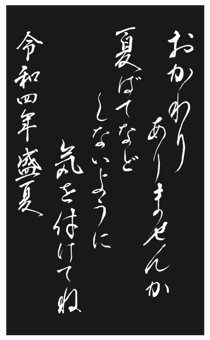 おかわり
ありませんか
夏ばてなど
しないように
気を付けてね
令和四年盛夏